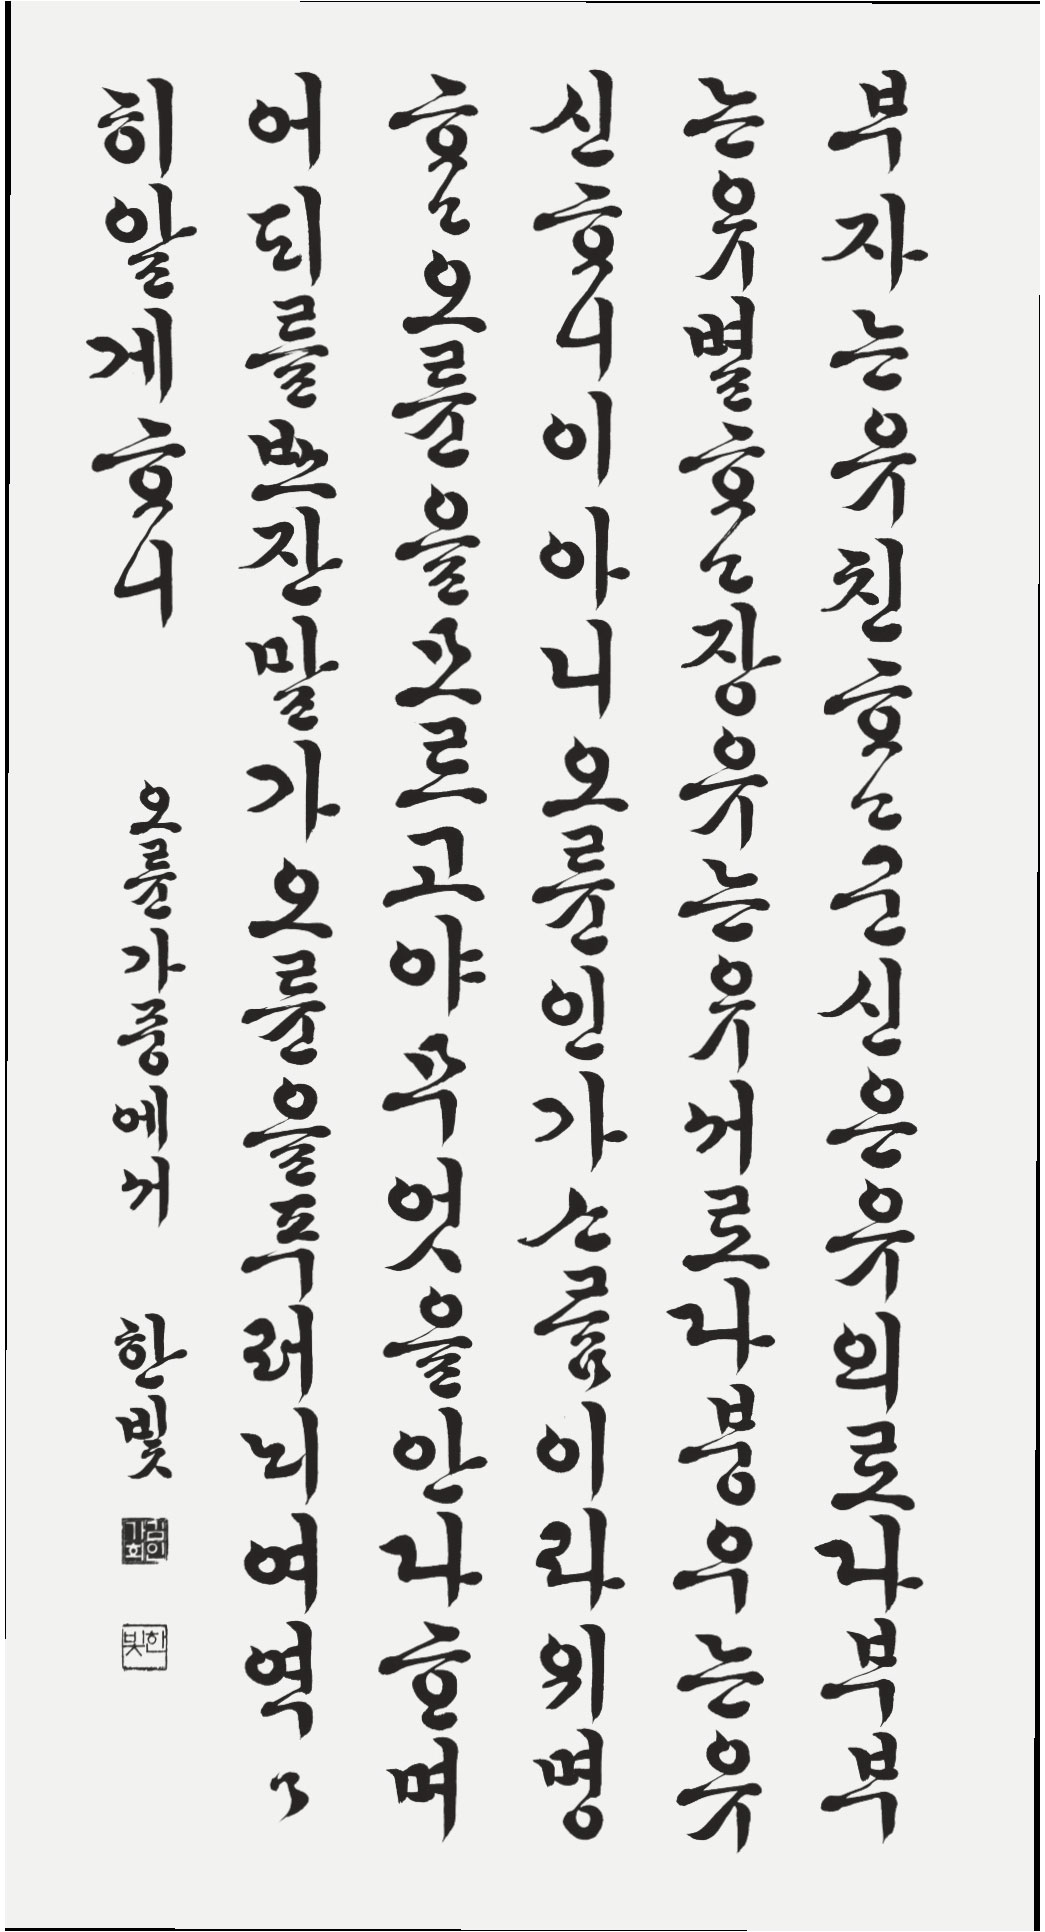 부자는유친ᄒᆞ고군신은유의로다부부
는유별ᄒᆞ고장유는유셔로다붕우는유
신ᄒᆞ니이아니오륜인가ᄉᆞ름이라위명
ᄒᆞ고오륜을모르고야무엇을안다ᄒᆞ며
어되를ᄡᅳ잔말가오륜을푸러뇌여역〻
히알게ᄒᆞ니
오륜가중에셔 한빛
한빛